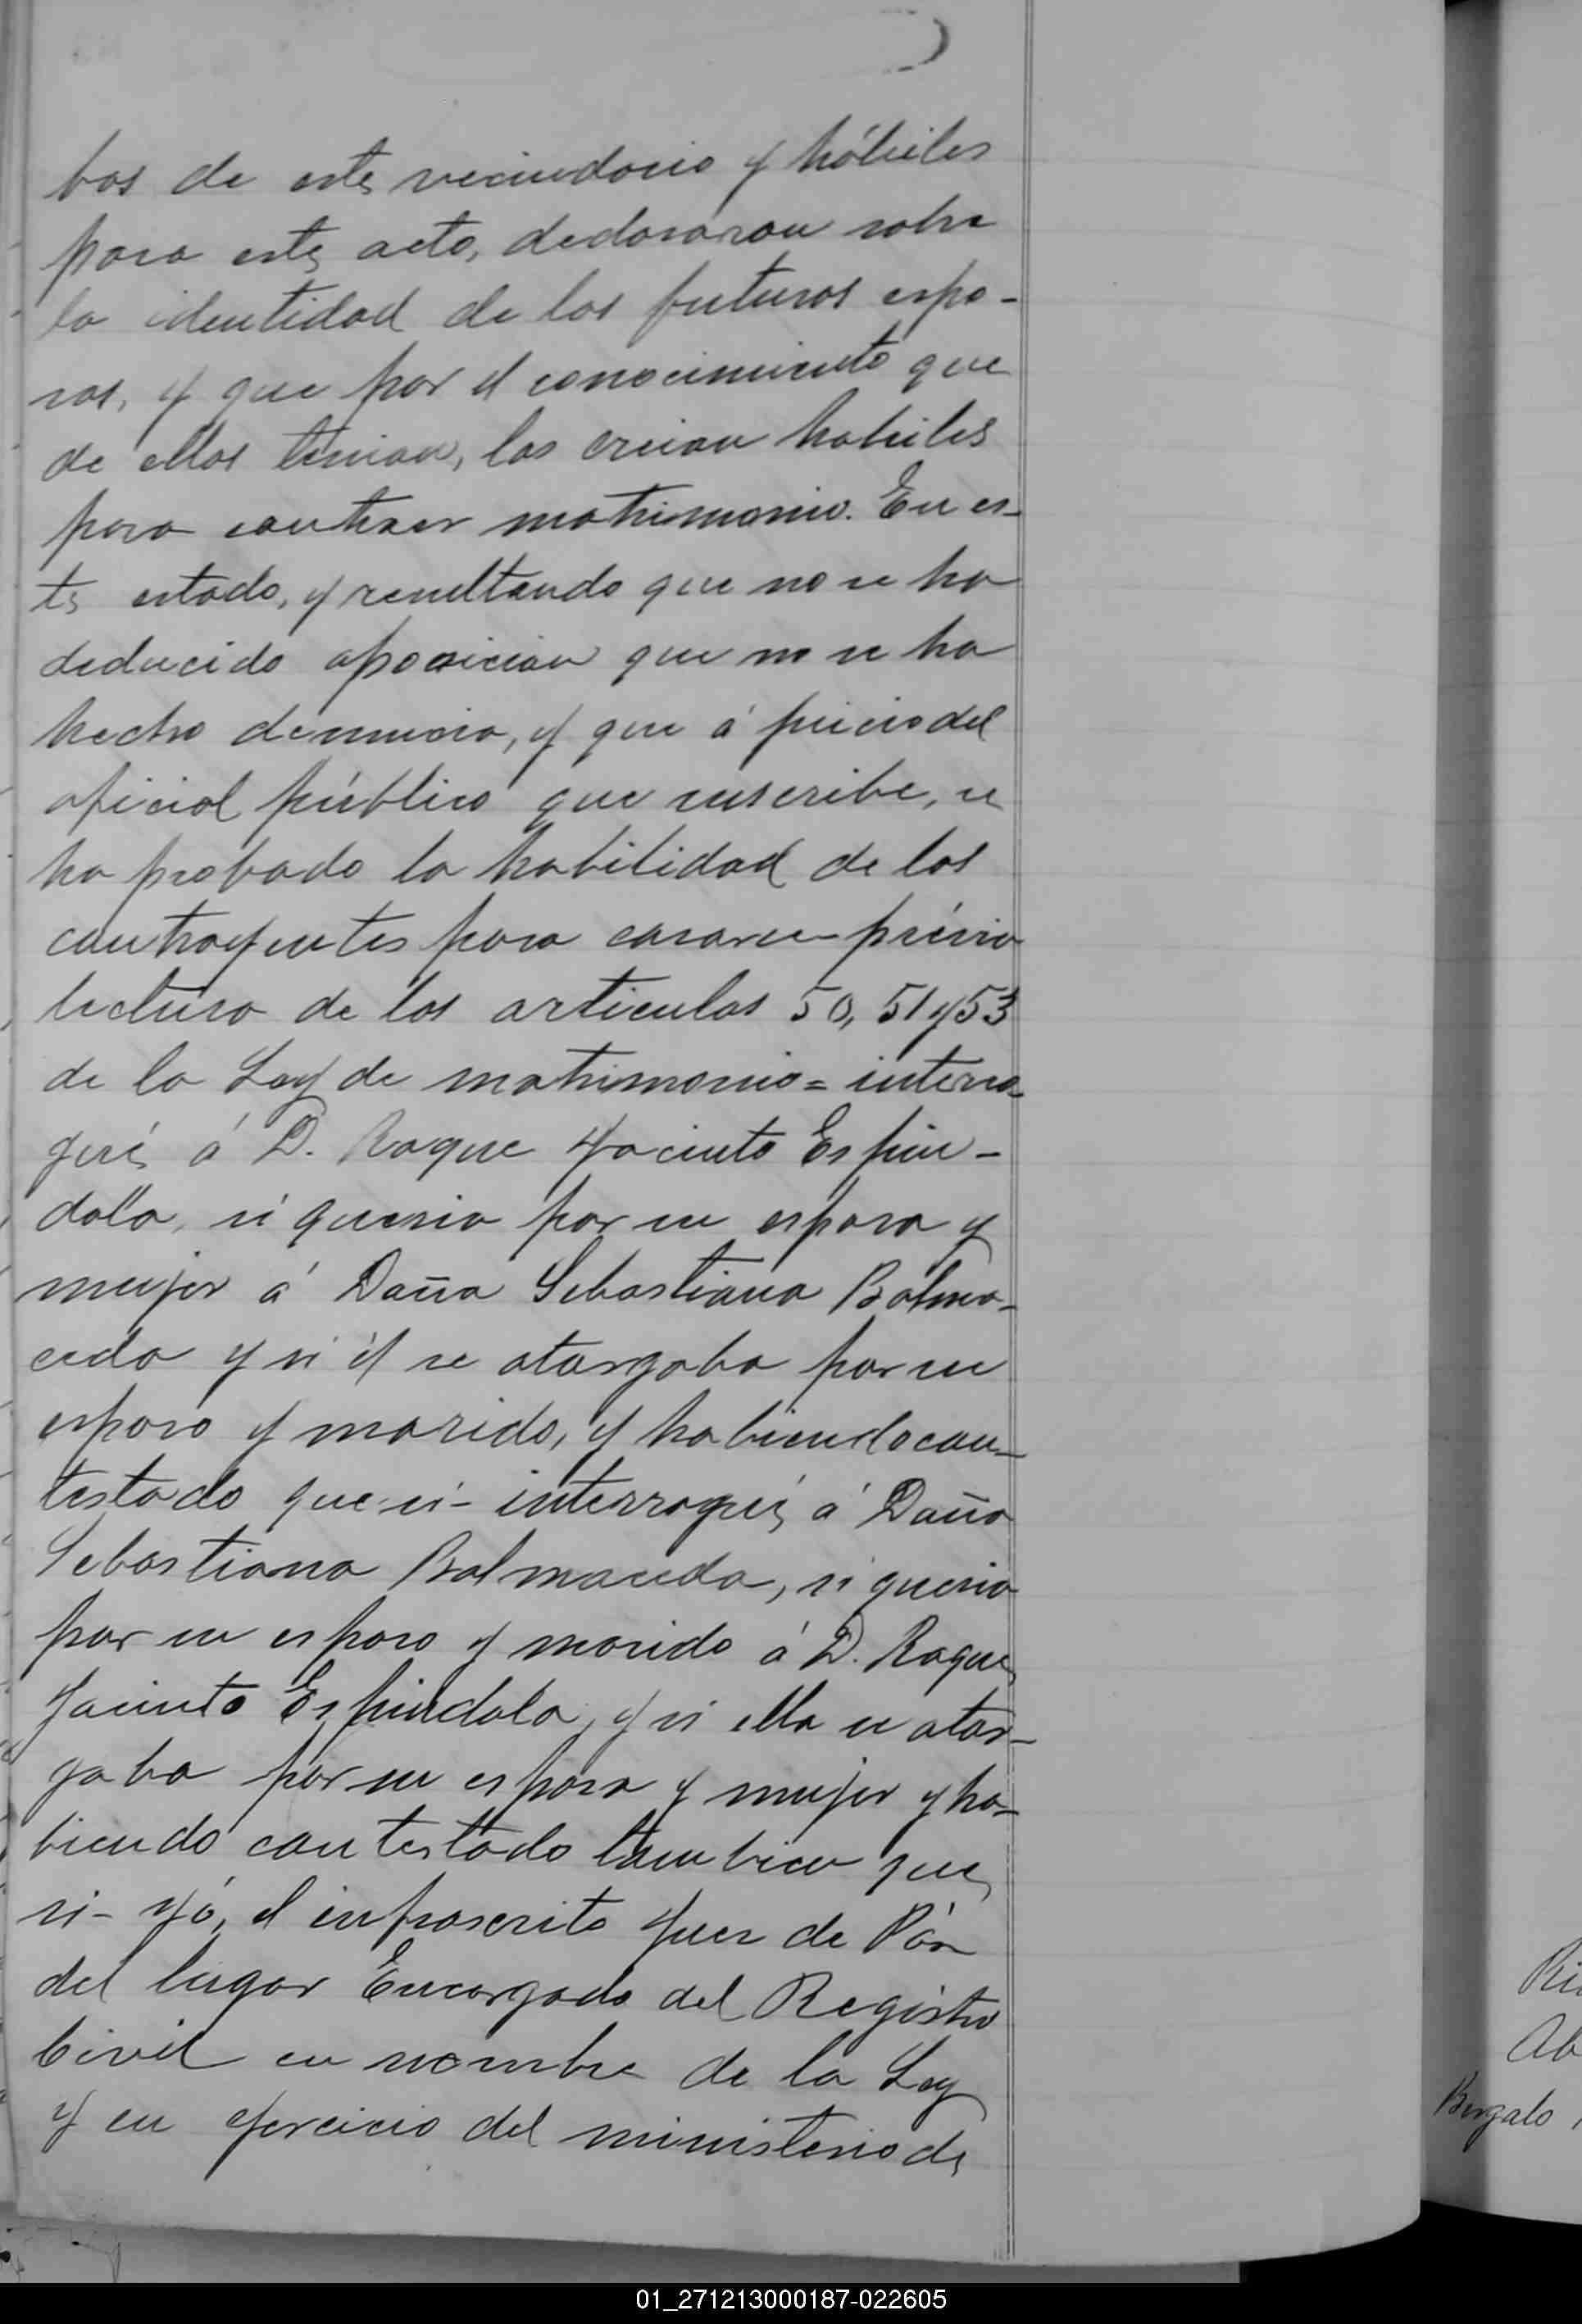 bos de este vecindario y hábiles
para este acto, declararon sobre
la identidad de los futuros espo-
sos, y que por el conocimiento que
de ellos tenian, los creian habiles
para contraer matrimonio. En es-
te estado, y resultando que no se ha
deducido oposicion que no se ha
hecho denuncia, y que á juicio del
oficial público que suscribe, se
ha probado la habilidad de los
contrayentes para casarse - prévia
lectura de los articulos 50, 51 y 53
de la Ley de matrimonio = interro-
gué á D. Roque Jacinto Espin-
dola, si queria por su esposa y
mujer á Doña Sebastiana Balma-
ceda y si él se otorgaba por su
esposo y marido, y habiendo con-
testado que si - interrogué á Doña
Sebastiana Balmaceda, si queria
por su esposo y marido á D. Roque
Jacinto Espindola, y si ella se otor-
gaba por su esposa y mujer y ha-
biendo contestado tambien que
si - yó, el infrascrito Juez de Páz
del lugar Encargado del Registro
Civil en nombre de la Ley
y en ejercicio del ministerio de
Ab
Bergalo
01_271213000187-022605